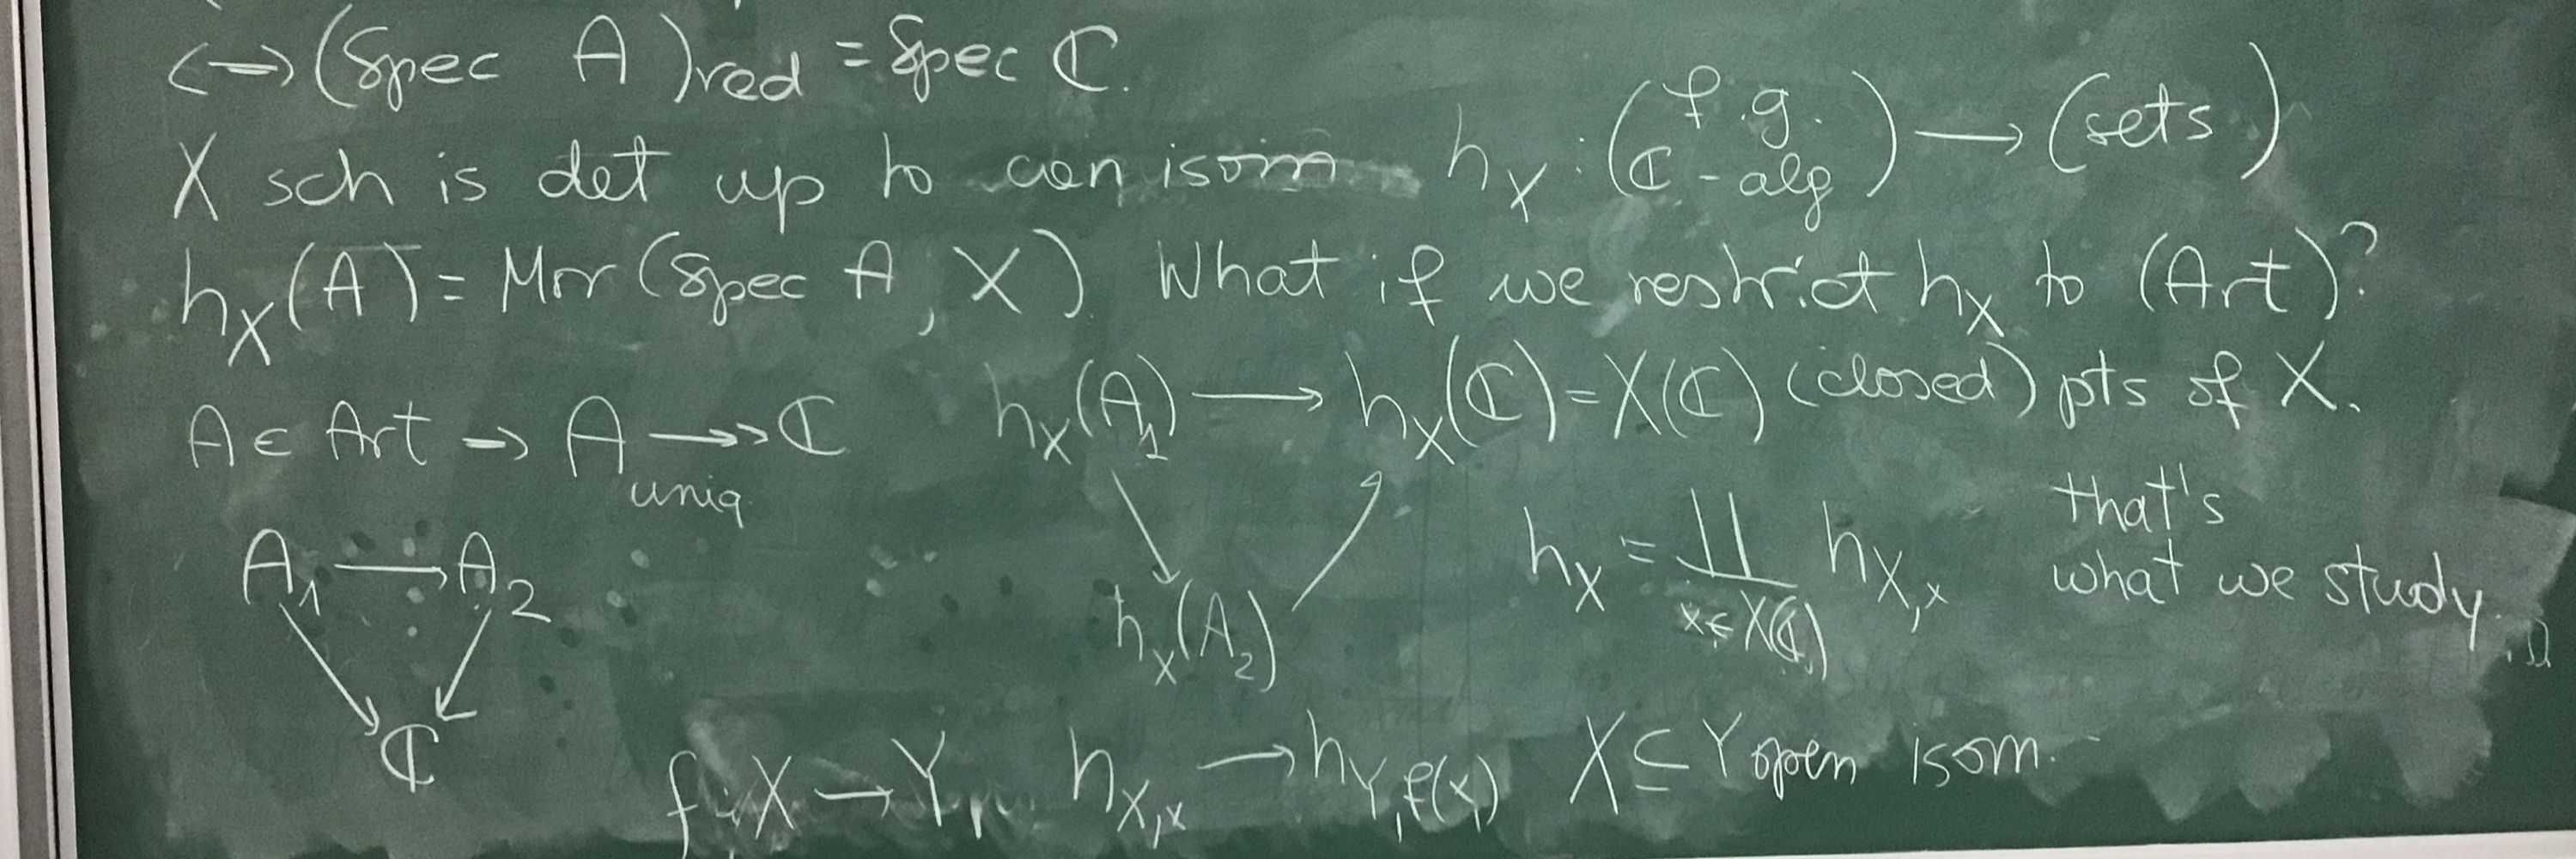 ⟺ (Spec A)red = Spec ℂ.
X sch is det up to can isom h_X : (f.g. ℂ-alg) → (sets)
h_X(A) = Mor(Spec A, X). What if we restrict h_X to (Art)?
A ∈ Art → A ↠ ℂ
uniq
h_X(A_1) → h_X(ℂ) = X(ℂ) (closed) pts of X.
h_X(A_2)
A_1 → A_2
ℂ
h_X = ∐_{x∈X(ℂ)} h_{X,x}
that's
what we study.
f: X → Y, h_{X,x} → h_{Y,f(x)} X ⊆ Y open isom.